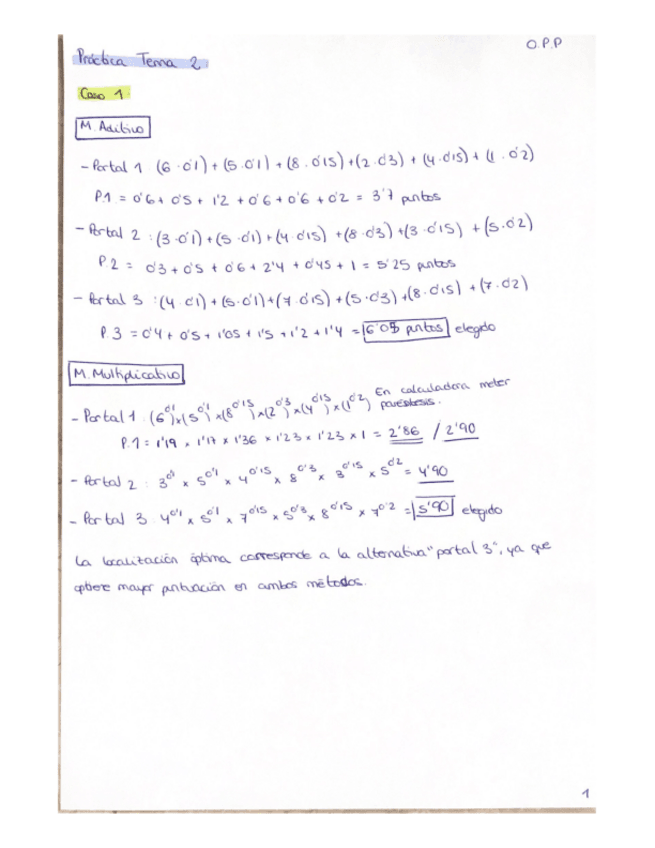 O.P.P
Práctica Tema 2.
Caso 1.
M. Aditivo
- Portal 1 (6·0'1)+(5·0'1)+(8·0'15)+(2·0'3)+(4·0'15)+(1·0'2)
P.1 = 0'6+0'5+1'2+0'6+0'6+0'2 = 3'7 puntos
- Portal 2 : (3·0'1)+(5·0'1)+(4·0'15)+(8·0'3)+(3·0'15)+(5·0'2)
P.2 = 0'3+0'5+0'6+2'4+0'45+1 = 5'25 puntos
- Portal 3 : (4·0'1)+(5·0'1)+(7·0'15)+(5·0'3)+(8·0'15)+(7·0'2)
P.3 = 0'4+0'5+1'05+1'5+1'2+1'4 = 6'05 puntos elegido
M. Multiplicativo
- Portal 1 : (6^0'1)x(5^0'1)x(8^0'15)x(2^0'3)x(4^0'15)x(1^0'2) En calculadora meter paréntesis.
P.1 = 1'19 x 1'17 x 1'36 x 1'23 x 1'23 x 1 = 2'86 / 2'90
- Portal 2 : 3^0'1 x 5^0'1 x 4^0'15 x 8^0'3 x 3^0'15 x 5^0'2 = 4'90
- Portal 3 : 4^0'1 x 5^0'1 x 7^0'15 x 5^0'3 x 8^0'15 x 7^0'2 = 5'90 elegido
La localización óptima corresponde a la alternativa "portal 3", ya que
obtiene mayor puntuación en ambos métodos.
1